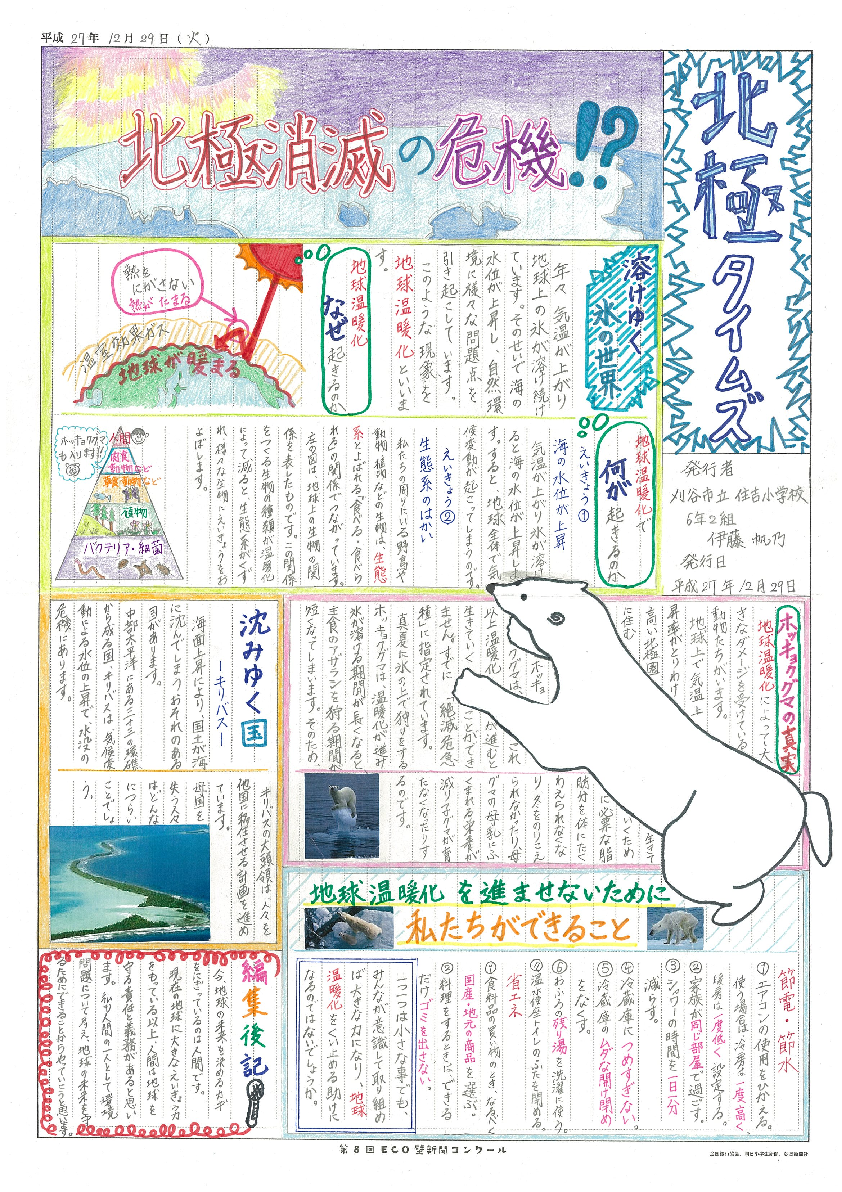 平成 27年 12月 29日 (火)
北極タイムズ
北極消滅の危機!?
発行者
刈谷市立 住吉小学校
6年2組
伊藤 帆乃
発行日
平成27年12月29日
溶けゆく
氷の世界
年々、気温が上がり
地球上の氷が溶け続け
ています。そのせいで海の
水位が上昇し、自然環
境に様々な問題点を
引き起こしています。
このような現象を
地球温暖化といいま
す。
地球温暖化
なぜ起きるのか
熱を
にがさない
熱がたまる
温室効果ガス
地球が暖まる
地球温暖化で
何が起きるのか
えいきょう①
海の水位が上昇
気温が上がり氷が溶け
ると海の水位が上昇しま
す。すると、地球全体で気
候変動が起こってしまうのです。
えいきょう②
生態系のはかい
私たちの周りにいる野鳥や
動物、植物などの生物は、生態
系とよばれる「食べる・食べら
れる」の関係でつながっています。
左の図は、地球上の生物の関
係を表したものです。この関係
をつくる生物の種類が温暖化
によって減ると、生態系がくず
れ、様々な生物にえいきょうをお
よぼします。
ホッキョクグマ
も入ります!!
人間
肉食
動物など
草食動物など
植物
バクテリア・細菌
ホッキョクグマの真実
地球温暖化によって大
きなダメージを受けている
動物たちがいます。
地球上で気温上
昇率がとりわけ
高い北極圏
に住む
ホッ
キョクグマは、
これ
以上温暖化が進むと
生きていくことができ
ません。すでに、絶滅危惧
種に指定されています。
真夏に氷の上で狩りをする
ホッキョクグマは、温暖化が進み
氷が溶ける期間が長くなると
主食のアザラシを狩る期間が
短くなってしまいます。そのため、
生きて
いくため
に必要な脂
肪分を体にたく
わえられなくな
り、冬をのりこえ
られなかったり、母
グマの母乳にふ
くまれる栄養が
減り、子グマが育
たなくなったりす
るのです。
沈みゆく国
ーキリバスー
海面上昇により、国土が海
に沈んでしまうおそれのある
国があります。
中部太平洋にある三十三の環礁
から成る国、キリバスは、気候変
動による水位の上昇で、水没の
危機にあります。
キリバスの大頭領は、人々を
他国に移住させる計画を進め
ています。
母国を
失う人々
はどんな
につらい
ことでしょ
う。
地球温暖化を進ませないために
私たちができること
節電・節水
①エアコンの使用をひかえる。
使う場合は、冷房は一度高く、
暖房は一度低く設定する。
②家族が同じ部屋で過ごす。
③シャワーの時間を一日一分
減らす。
④冷蔵庫につめすぎない。
⑤冷蔵庫のムダな開け閉め
をなくす。
⑥おふろの残り湯を洗濯に使う。
⑦温水便座トイレのふたを閉める。
省エネ
①食料品の買い物のとき、なるべく
国産・地元の商品を選ぶ。
②料理をするときに、できる
だけゴミを出さない。
一つ一つは小さな事でも
みんなが意識して取り組め
ば大きな力になり、地球
温暖化をくい止める助けに
なるのではないでしょうか。
編集後記
今、地球の未来を決めるカギ
をにぎっているのは人間です。
現在の地球に大きなえいきょう力
をもっている以上、人間は地球を
守る責任と義務があると思い
ます。私も人間の一人として環境
問題について考え、地球の未来を守
るためにできることからやっていこうと思います。
第8回 ECO壁新聞コンクール